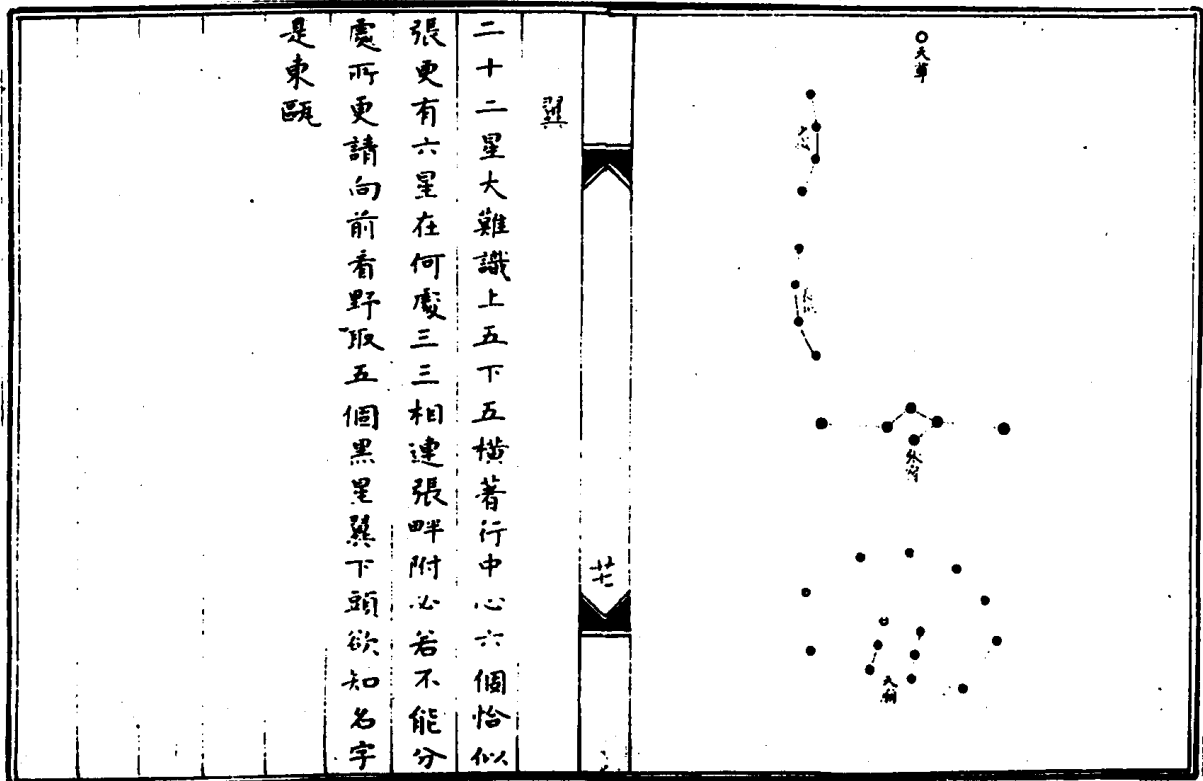 長垣
張宿
天廟
廿七
翼
二十二星大難識上五下五橫著行中心六個恰似
張更有六星在何處三三相連張畔附必若不能分
處所更請向前看野取五個黑星翼下頭欲知名字
是東甌